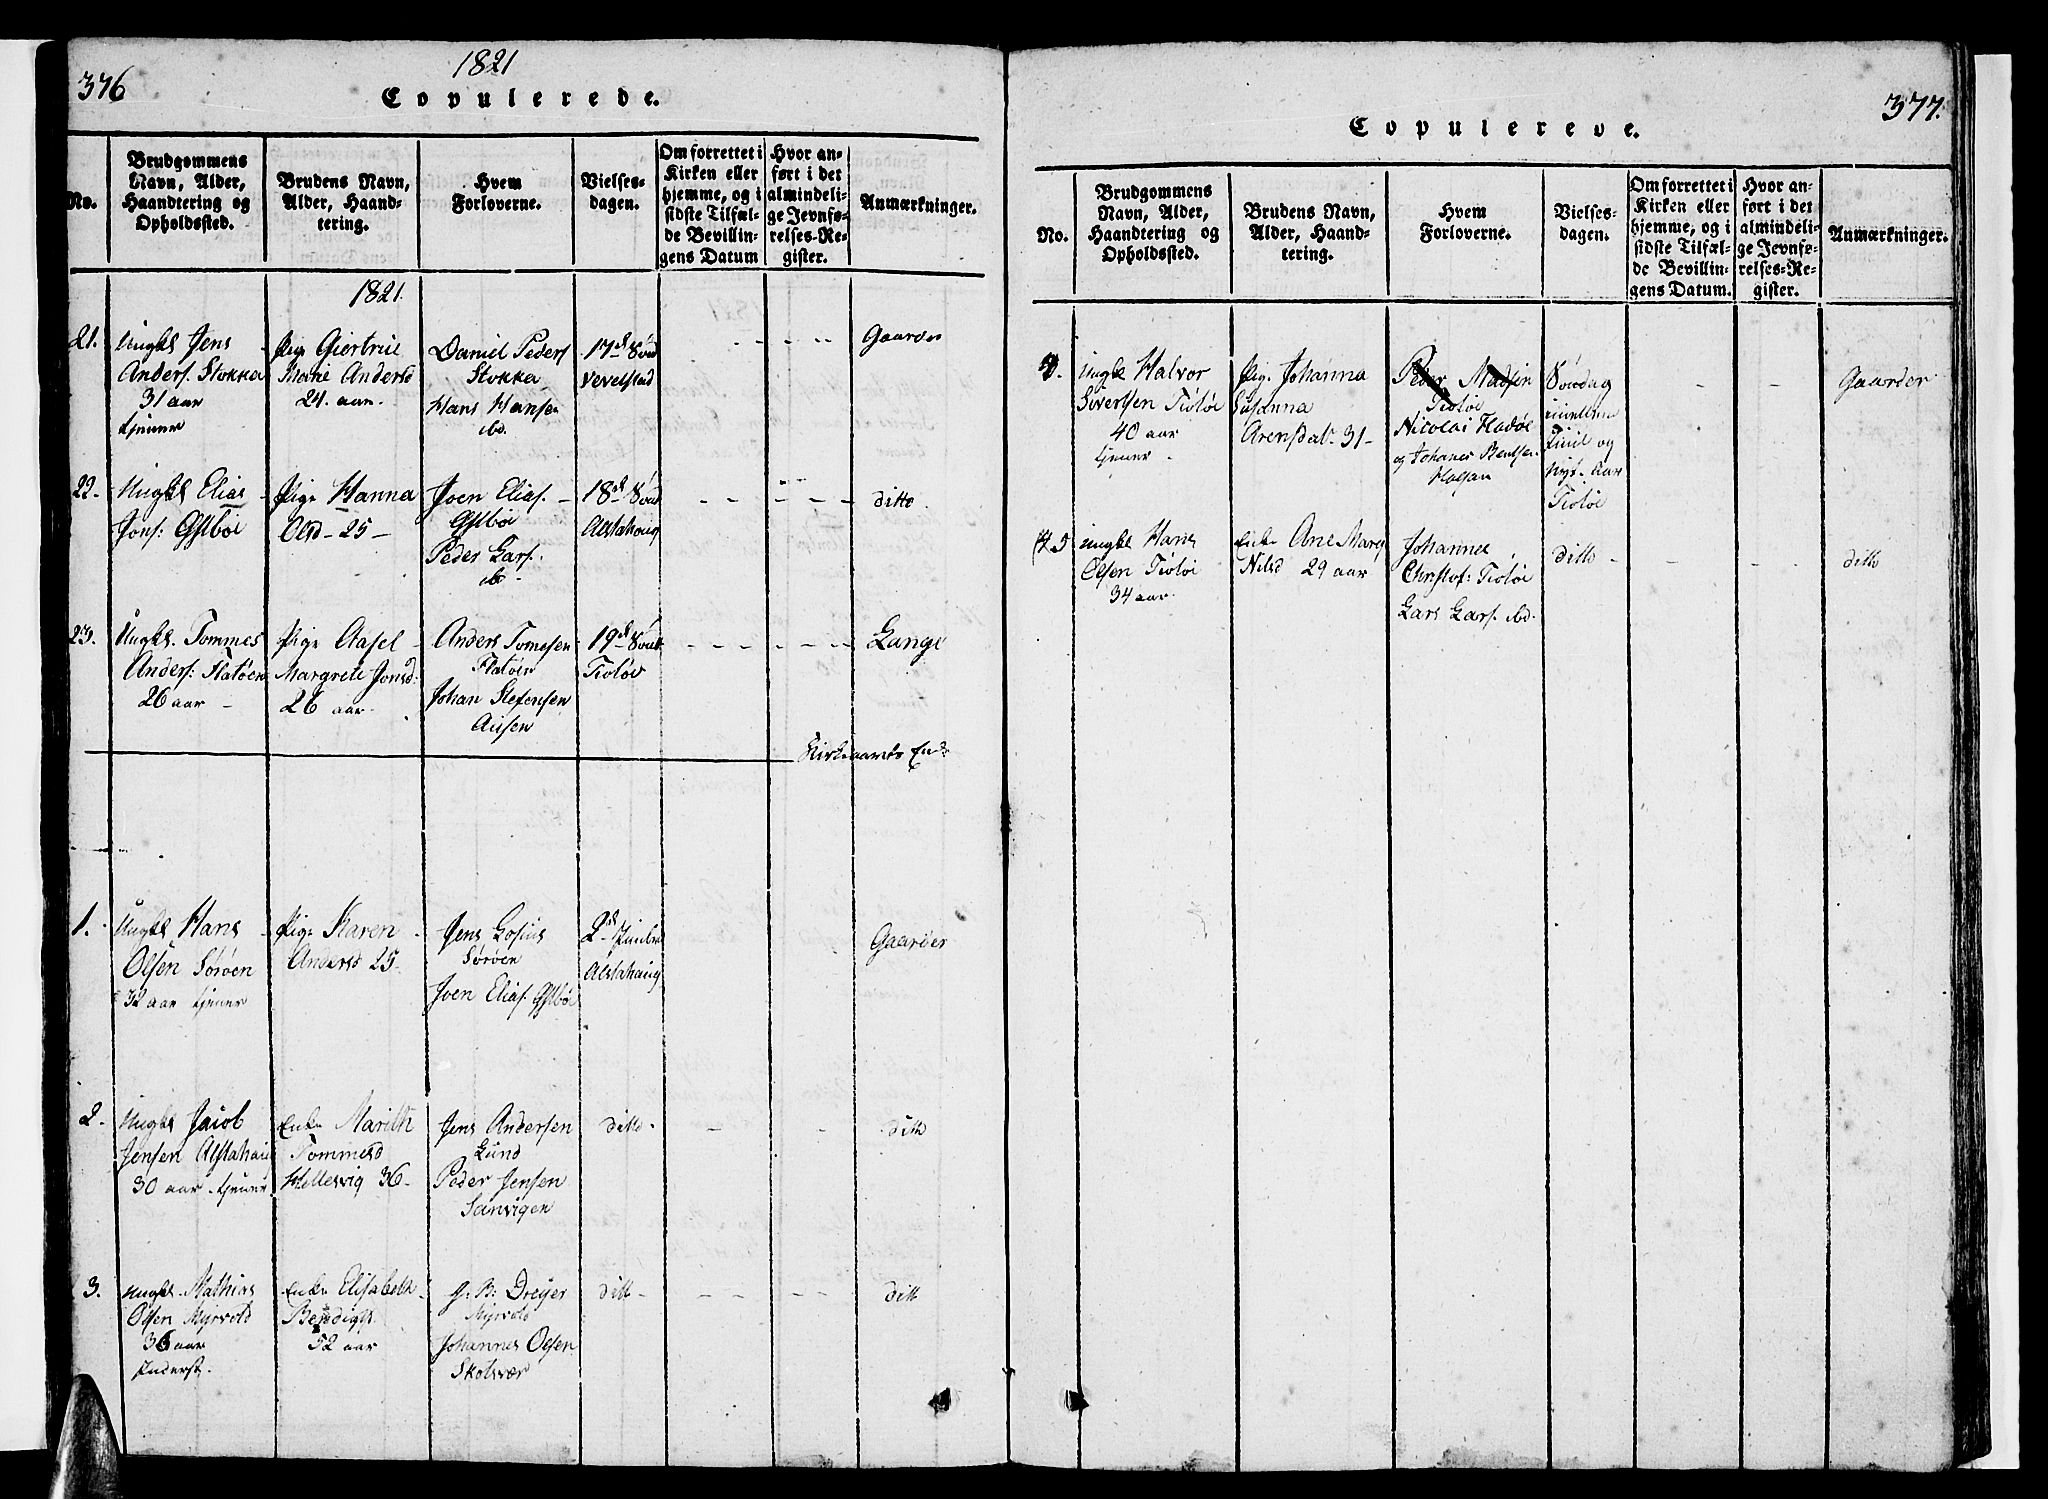 376
1821
Copulerede.
No.
Brudgommens
Navn, Alder,
Haandtering og
Opholdssted.
Brudens Navn,
Alder, Haand-
tering.
Hvem
Forloverne.
Vielses-
dagen.
Om forrettet i
Kirken eller
hjemme, og i
sidste Tilfæl-
de Bevillin-
gens Datum
Hvor an-
ført i det
almindeli-
ge Jevnfø-
relses-Re-
gister.
Anmærkninger.
1821.
21.
Ungkl Jens
Anders. Stokka
31 aar
tjener
Pige Giertrue
Marie Andersd
24. aar.
Daniel Peders
Stokka
Hans Hansen
ibd.
17de
Vevelstad
Gaarder
22.
Ungkl Elias
Jons:
Pige Hanna
Olsd - 25 -
Joen Elias. -
Peder Lars.
ibd -
18de
Alstahoug
ditto
23.
Ungkl. Tommes
Anders: Flatøen
26 aar -
Pige Aasel
Margrete Jonsd:
26 aar.
Anders Tomesen
Flatøen
Johan Stefensen
19de
Tiøtøe
Lange
Kirkeaarets Ende
1.
Ungkl Hans
Olsen Sørøen
32 aar tjener
Pige Karen
Andersd 25
Jens
Sørøen
Joen Elias.
2de
Alstahoug
Gaarder
2.
Ungkl Jacob
Jensen Alstahaug
30 aar - tjener
Enke Marith
Tommesd
Hellesvig 36 -
Jens Andersen
Lund
Peder Jensen
Sanvigen
ditto -
ditto
3.
Ungkl. Mathias
Olsen Myrvold
36 aar
Inderst.
Enke Elisabeth
52 aar
G. B. Dreyer
Myrvold
Johannes Olsen
Skotsvær
ditto -
ditto
377.
Copulerede.
No.
Brudgommens
Navn, Alder,
Haandtering og
Opholdssted.
Brudens Navn,
Alder, Haand-
tering.
Hvem
Forloverne.
Vielses-
dagen.
Om forrettet i
Kirken eller
hjemme, og i
sidste Tilfæl-
de Bevillin-
gens Datum.
Hvor an-
ført i det
almindeli-
ge Jevnfø-
relses-Re-
gister.
Anmærkninger.
4.
Ungkl Halvor
Sivertsen Tiøtøe
40 aar
tjener
Pige Johanna
Susanna
31 -
Peder Madsen
Tiøtøe
Nicolai
og Johanes Bentsen
Søndag
imellem
Juul og
Nyt. Aar
Tiøtøe
Gaarder
5
Ungkl Hans
Olsen Tiøtøe
34 aar.
Enke Ane Marg
Nilsd 29 aar
Johannes
Christof: Tiøtøe
Lars Lars. ibd.
ditto -
ditto